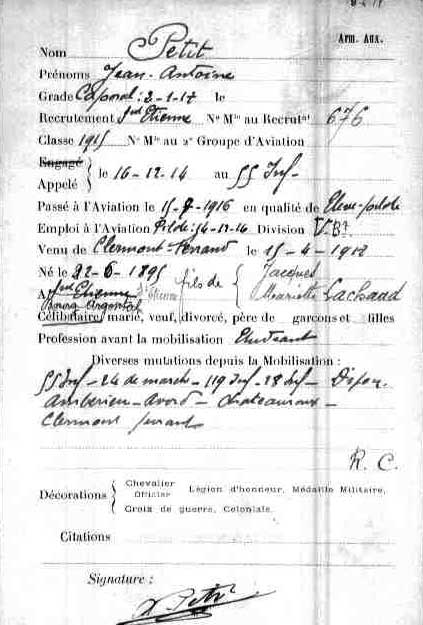 Arm. Aux.
Nom Petit
Prénoms Jean-Antoine
Grade Caporal : 2-1-17 le
Recrutement St Etienne No Mle au Recrutt 676
Classe 1915 No Mle au 2e Groupe d'Aviation
Engagé
Appelé } le 16-12-14 au 55 Inf-
Passé à l'Aviation le 15-7-1916 en qualité de Eleve-pilote
Emploi à l'Aviation Pilote: Division V.B1
Venu de Clermont-Ferrand le 15-4-1918
Né le 22-6-1895 fils de { Jacques
A St Etienne St Etienne Mariette Lachaud
Bourg Argental
Célibataire, marié, veuf, divorcé, père de garçons et filles
Profession avant la mobilisation Etudiant
Diverses mutations depuis la Mobilisation :
55 Inf - 24 de marche - 119 Inf - 28 Inf - Dijon
Amberieu - Avord - Chateauroux -
Clermont ferrant
R. C.
Décorations { Chevalier
Officier Légion d'honneur, Médaille Militaire,
Croix de guerre, Coloniale.
Citations
Signature :
Petit